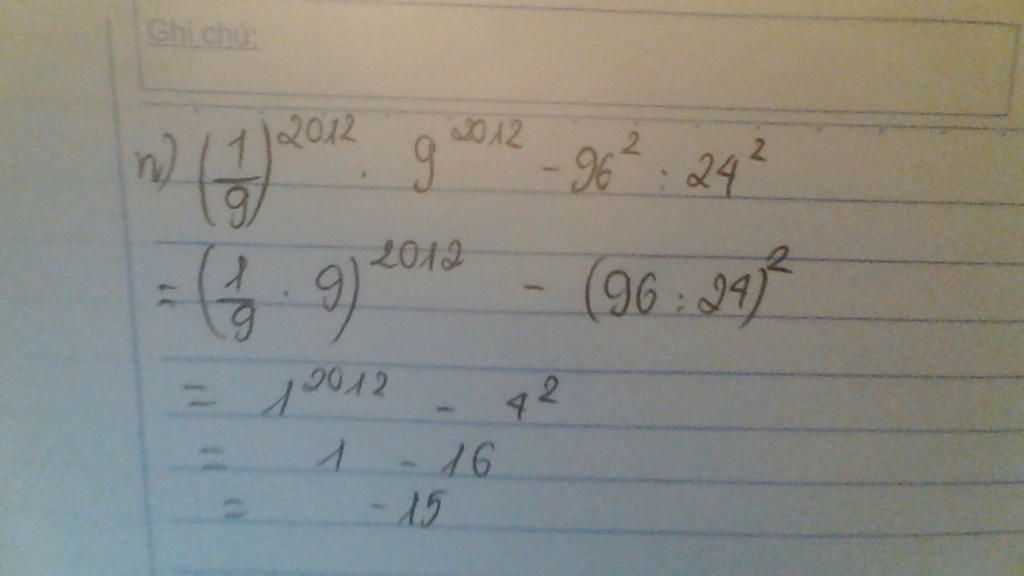 Ghi chú:
n) (1/9)^2012 . 9^2012 - 96^2 : 24^2
= (1/9 . 9)^2012 - (96 : 24)^2
= 1^2012 - 4^2
= 1 - 16
= -15